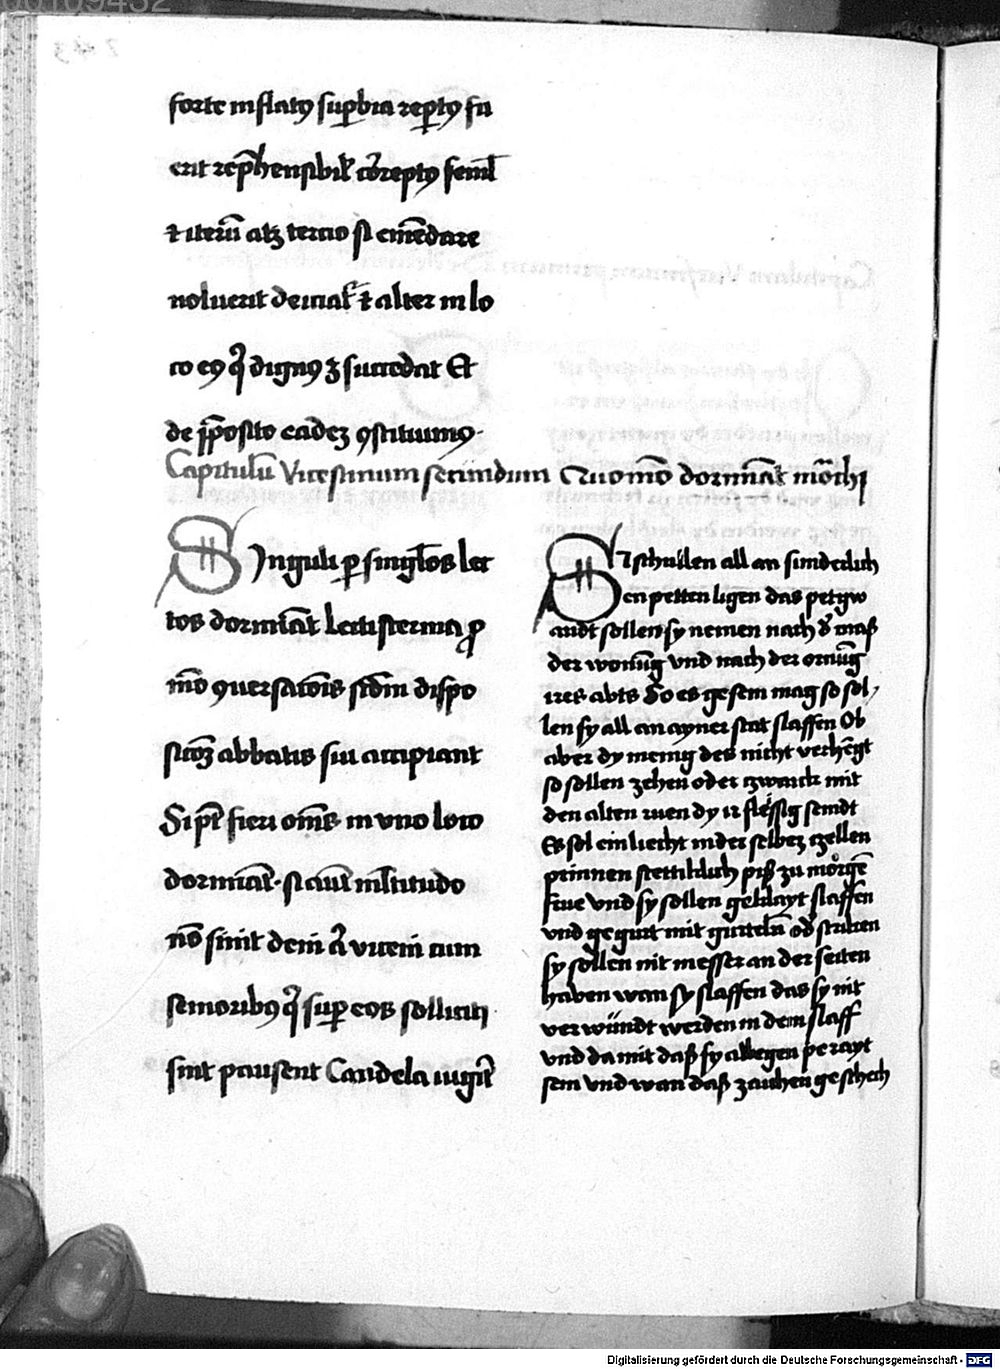 forte inflatꝰ suꝑbia reꝑtꝰ fu
erit rep̄hensibil᷑ cōreptꝰ semel
⁊ iterū atꝫ tercio si emēdare
noluerit deiciat᷑ ⁊ alter in lo
co eꝰ q̄ dignꝰ ꝫ succedat Et
de p̄posito eadeꝫ ꝯstituimꝰ
Capitulū Vicesimum secundum Quomō dormiāt mōchi
Singuli ꝑ singlōs lec
tos dormiāt lectisternia ꝓ
mō ꝯuersatōis scdm dispo
sicōꝫ abbatis sui accipiant
Si pōt fieri om̄s in vno loco
dormiāt si aut̄ ml̄titudo
nō sinit deni aū viceni cum
senioribꝰ q̄ suꝑ eos solliciti
sint pausent Candela iugit̄
Si schullen all an sunderlich
en petten ligen das petgw
andt sollen sy nemen nach d᷑ maß
der wonūg vnd nach der ornūg
ires abts So es gesein mag so sol
len sy all an ayner stat slaffen Ob
aber dy menig des nicht verhēgt
so sollen zehen oder zwaick mit
den alten ruen dy ir flëssig seindt
Es sol ein liecht in der selbeꝫ czellen
prinnen stettiklich piß zu mörgē
frue vnd sy sollen geklayt slaffen
vnd gegurt mit gurteln od᷑ stricken
sy söllen nit messer an der seiten
haben wan sy slaffen das sy nit
verwündt werden in dem slaff
vnd da mit daß sy allwegen perayt
sein vnd wan daß zaichen geschech
Digitalisierung gefördert durch die Deutsche Forschungsgemeinschaft - DFG